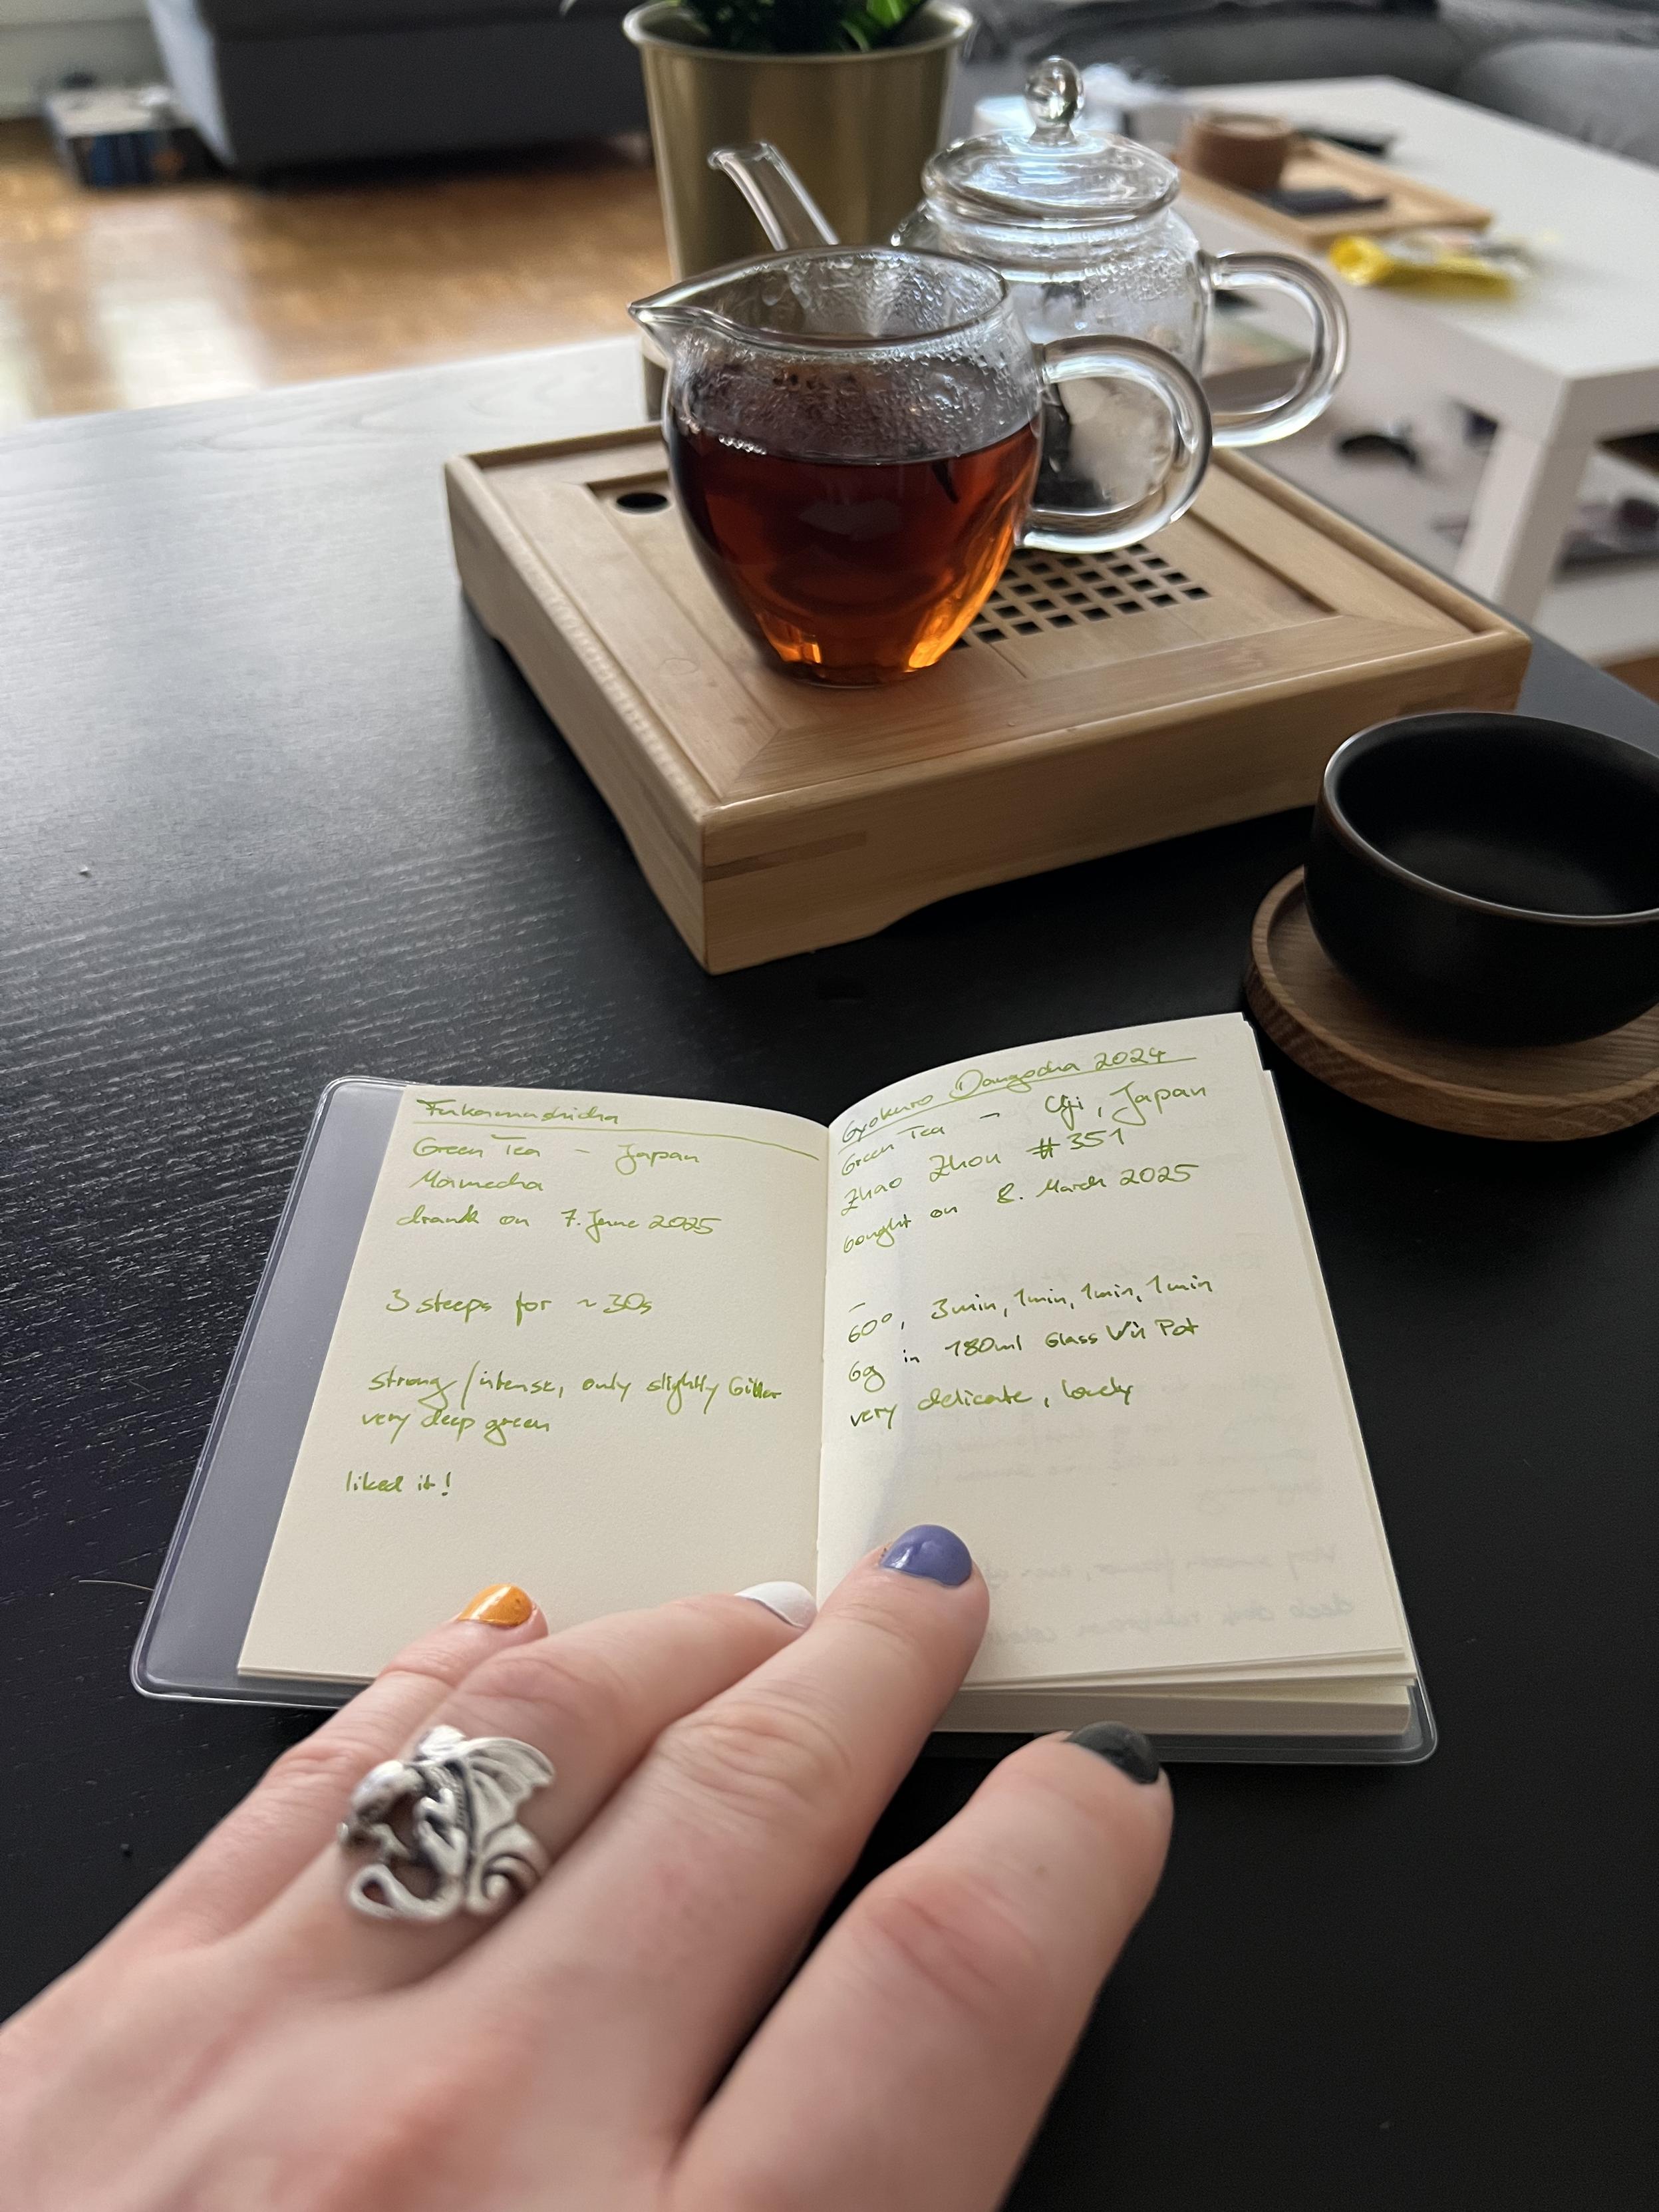 Fukamushicha
Green Tea - Japan
Mamecha
drank on 7. June 2025
3 steeps for ~30s
strong/intense, only slightly bitter
very deep green
liked it!
Gyokuro Dangocha 2024
Green Tea - Uji, Japan
Zhao Zhou #351
bought on 8. March 2025
60°, 3min, 1min, 1min, 1min
6g in 180ml Glass Pot
very delicate, lovely